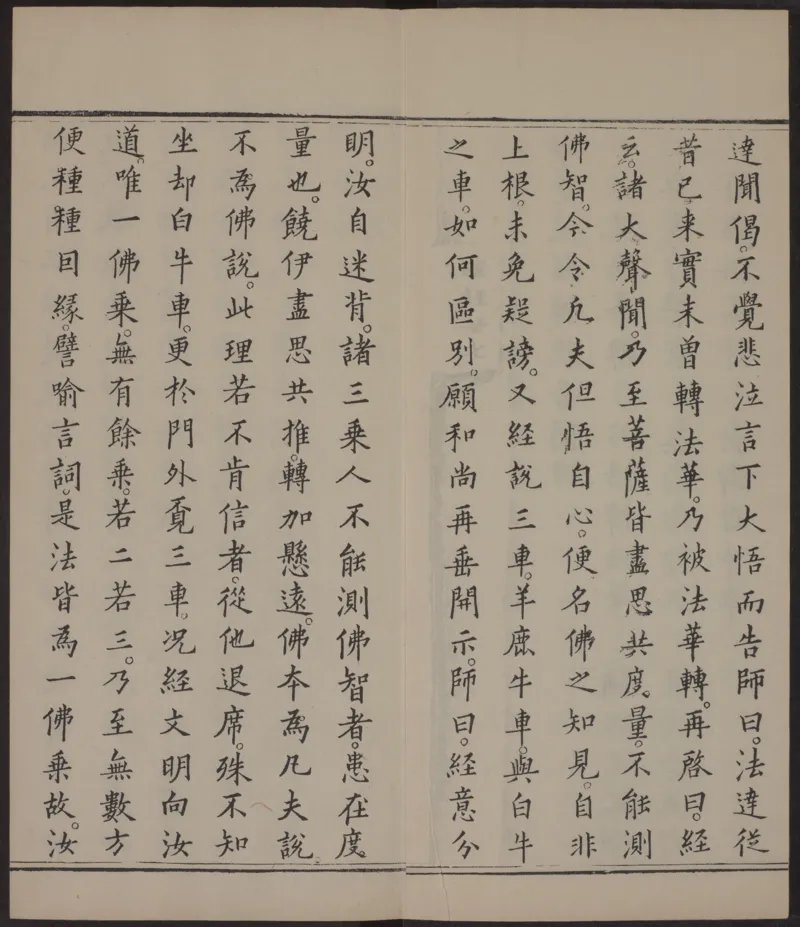 達聞偈。不覺悲泣言下大悟而告師曰。法達從
昔已来實未曾轉法華。乃被法華轉。再啓曰。經
云。諸大聲聞。乃至菩薩皆盡思共度量。不能測
佛智。今令凡夫但悟自心。便名佛之知見。自非
上根。未免疑謗。又經說三車。羊鹿牛車。與白牛
之車。如何區别。願和尚再垂開示。師曰。經意分
明。汝自迷背。諸三乗人不能測佛智者。患在度
量也。饒伊盡思共推。轉加懸遠。佛本為凡夫說
不為佛說。此理若不肯信者。從他退席。殊不知
坐却白牛車。更於門外覔三車。况經文明向汝
道。唯一佛乗。無有餘乗。若二若三。乃至無數方
便種種因緣。譬喻言詞。是法皆為一佛乗故。汝